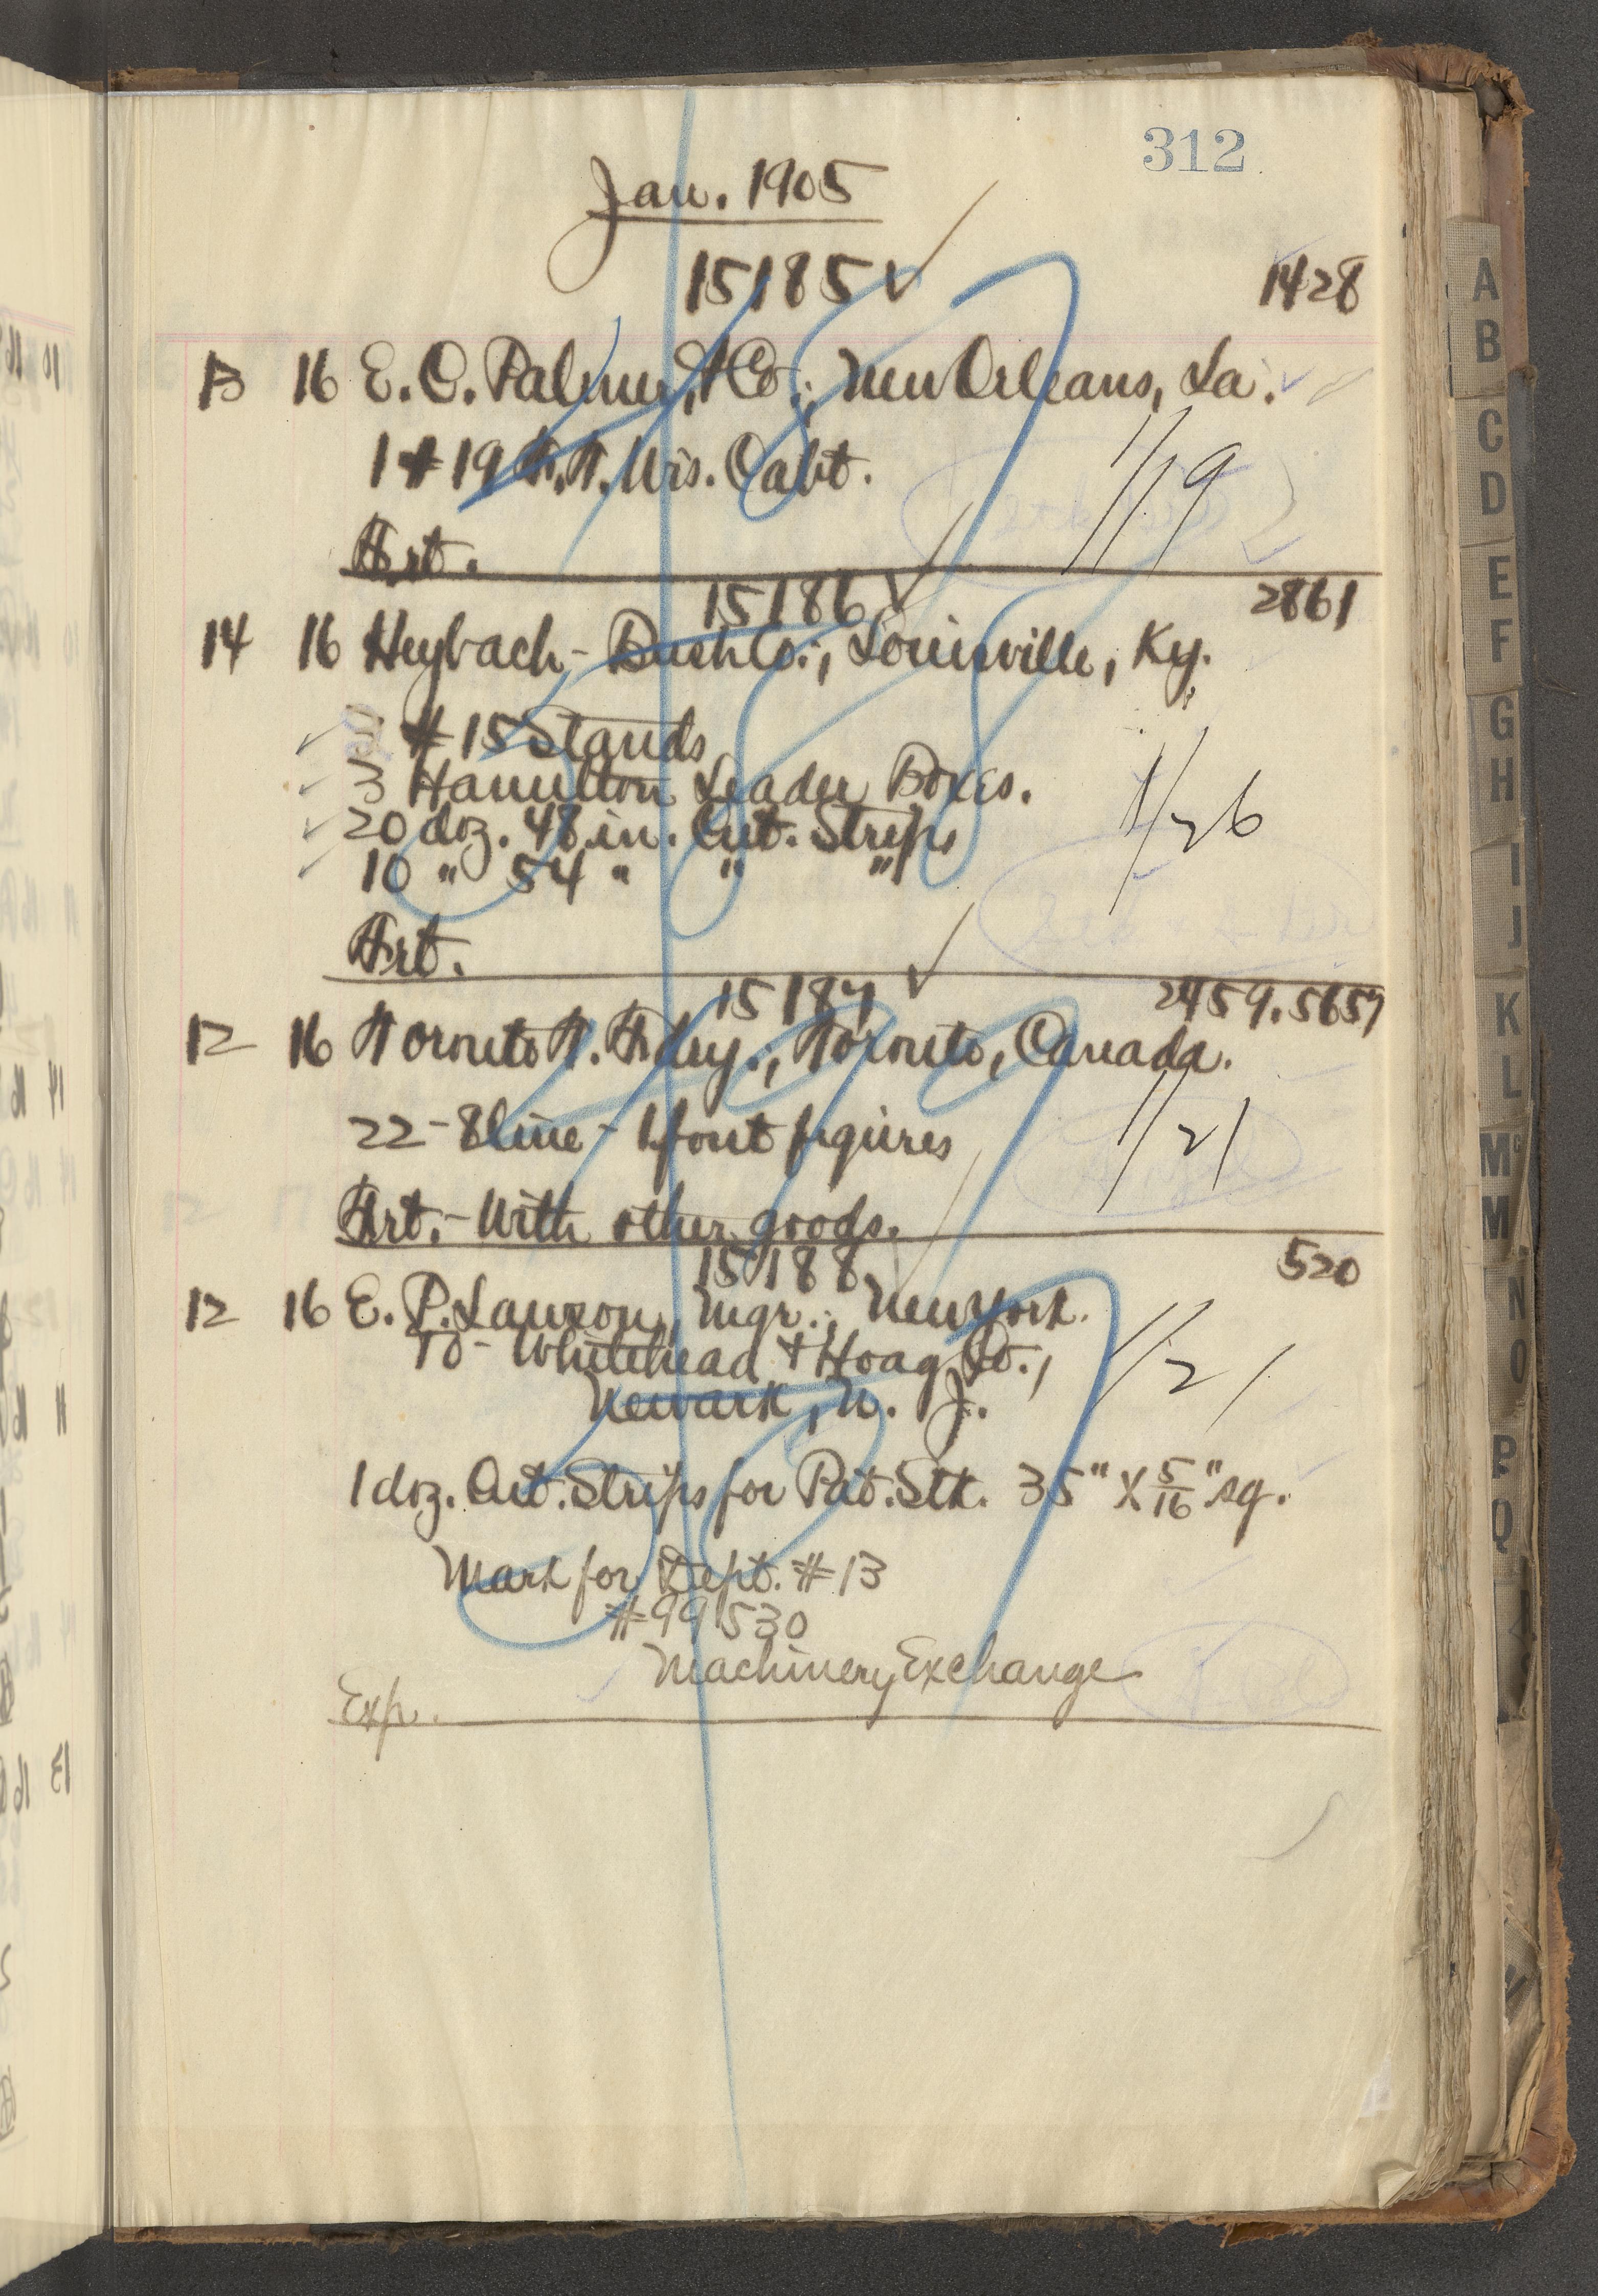 312
Jan. 1905
15185 ✓ 1428
13 16 E. C. Palmer, & Co.; New Orleans, La.
1 # 19 F. T. Wis. Cabt.
1/19
Frt.
15186 ✓ 2861
14 16 Heybach-Bush Co.; Louisville, Ky.
# 15 Stands
3 Hamilton Leader Boxes.
20 doz. 48 in. Cut. Strips
10 " 54 " " "
1/26
Frt.
15187 ✓ 2459.5657
12 16 Toronto T. Fdry.; Toronto, Canada.
22 - 8 line - 1 font figures
1/21
Frt. - With other goods.
15188 520
12 16 E. P. Lawson, Mgr.; New York.
To - Whitehead & Hoag Co.,
Newark, N. J.
1/21
1 doz. Cut. Strips for Pat. Stk. 35" X 5/16" sq.
Mark for Dept. # 13
# 99530
Machinery Exchange
Exp.
A
B
C
D
E
F
G
H
I
J
K
L
Mc
M
N
O
P
Q